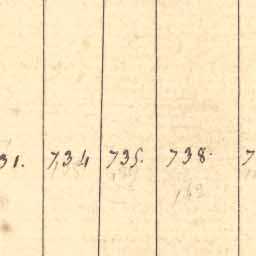 31. 734 735. 738. 7
162